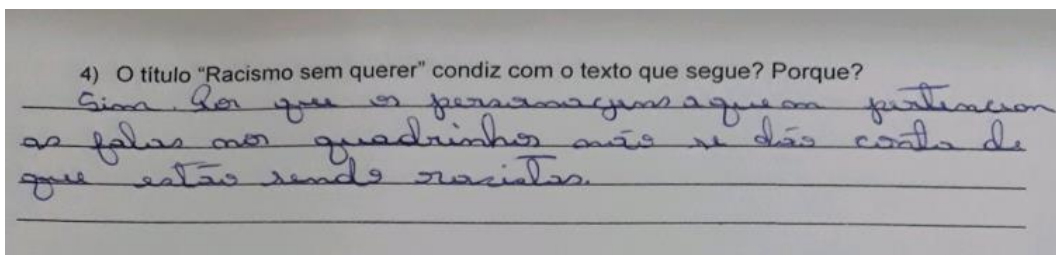 4) O título “Racismo sem querer” condiz com o texto que segue? Porque?
Sim. Por que os personagens a quem pertencem
as falas nos quadrinhos não se dão conta de
que estão sendo racistas.